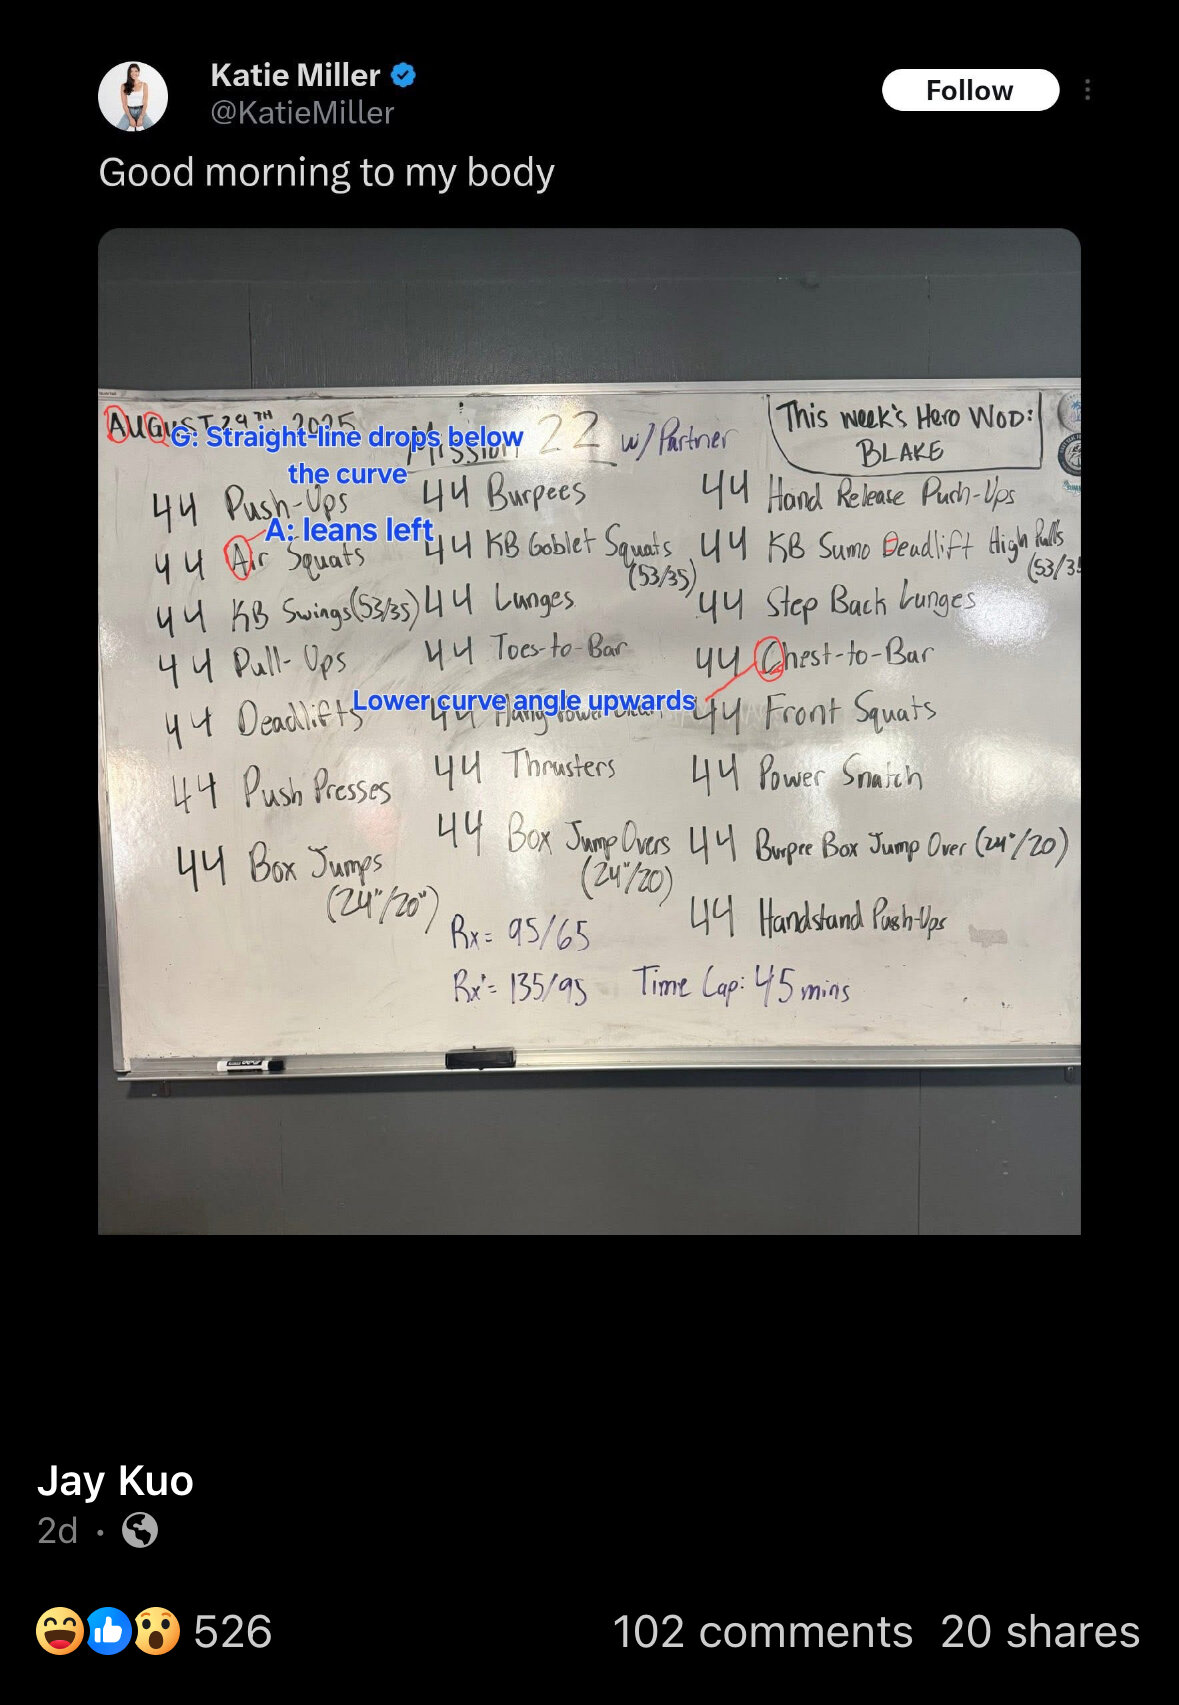 Katie Miller
@KatieMiller
Follow
Good morning to my body
AUGUST 29TH, 2025
Mission 22 w/ Partner
This week's Hero WOD:
BLAKE
G: Straight-line drops below
the curve
A: leans left
Lower curve angle upwards
44 Push-Ups
44 Air Squats
44 KB Swings (53/35)
44 Pull-Ups
44 Deadlifts
44 Push Presses
44 Box Jumps
(24"/20")
44 Burpees
44 KB Goblet Squats
(53/35)
44 Lunges
44 Toes-to-Bar
44 Hang Power Clean
44 Thrusters
44 Box Jump Overs
(24"/20)
Rx = 95/65
Rx+ = 135/95
Time Cap: 45 mins
44 Hand Release Push-Ups
44 KB Sumo Deadlift High Pulls
(53/35
44 Step Back Lunges
44 Chest-to-Bar
44 Front Squats
44 Power Snatch
44 Burpee Box Jump Over (24"/20)
44 Handstand Push-Ups
Jay Kuo
2d
526
102 comments 20 shares